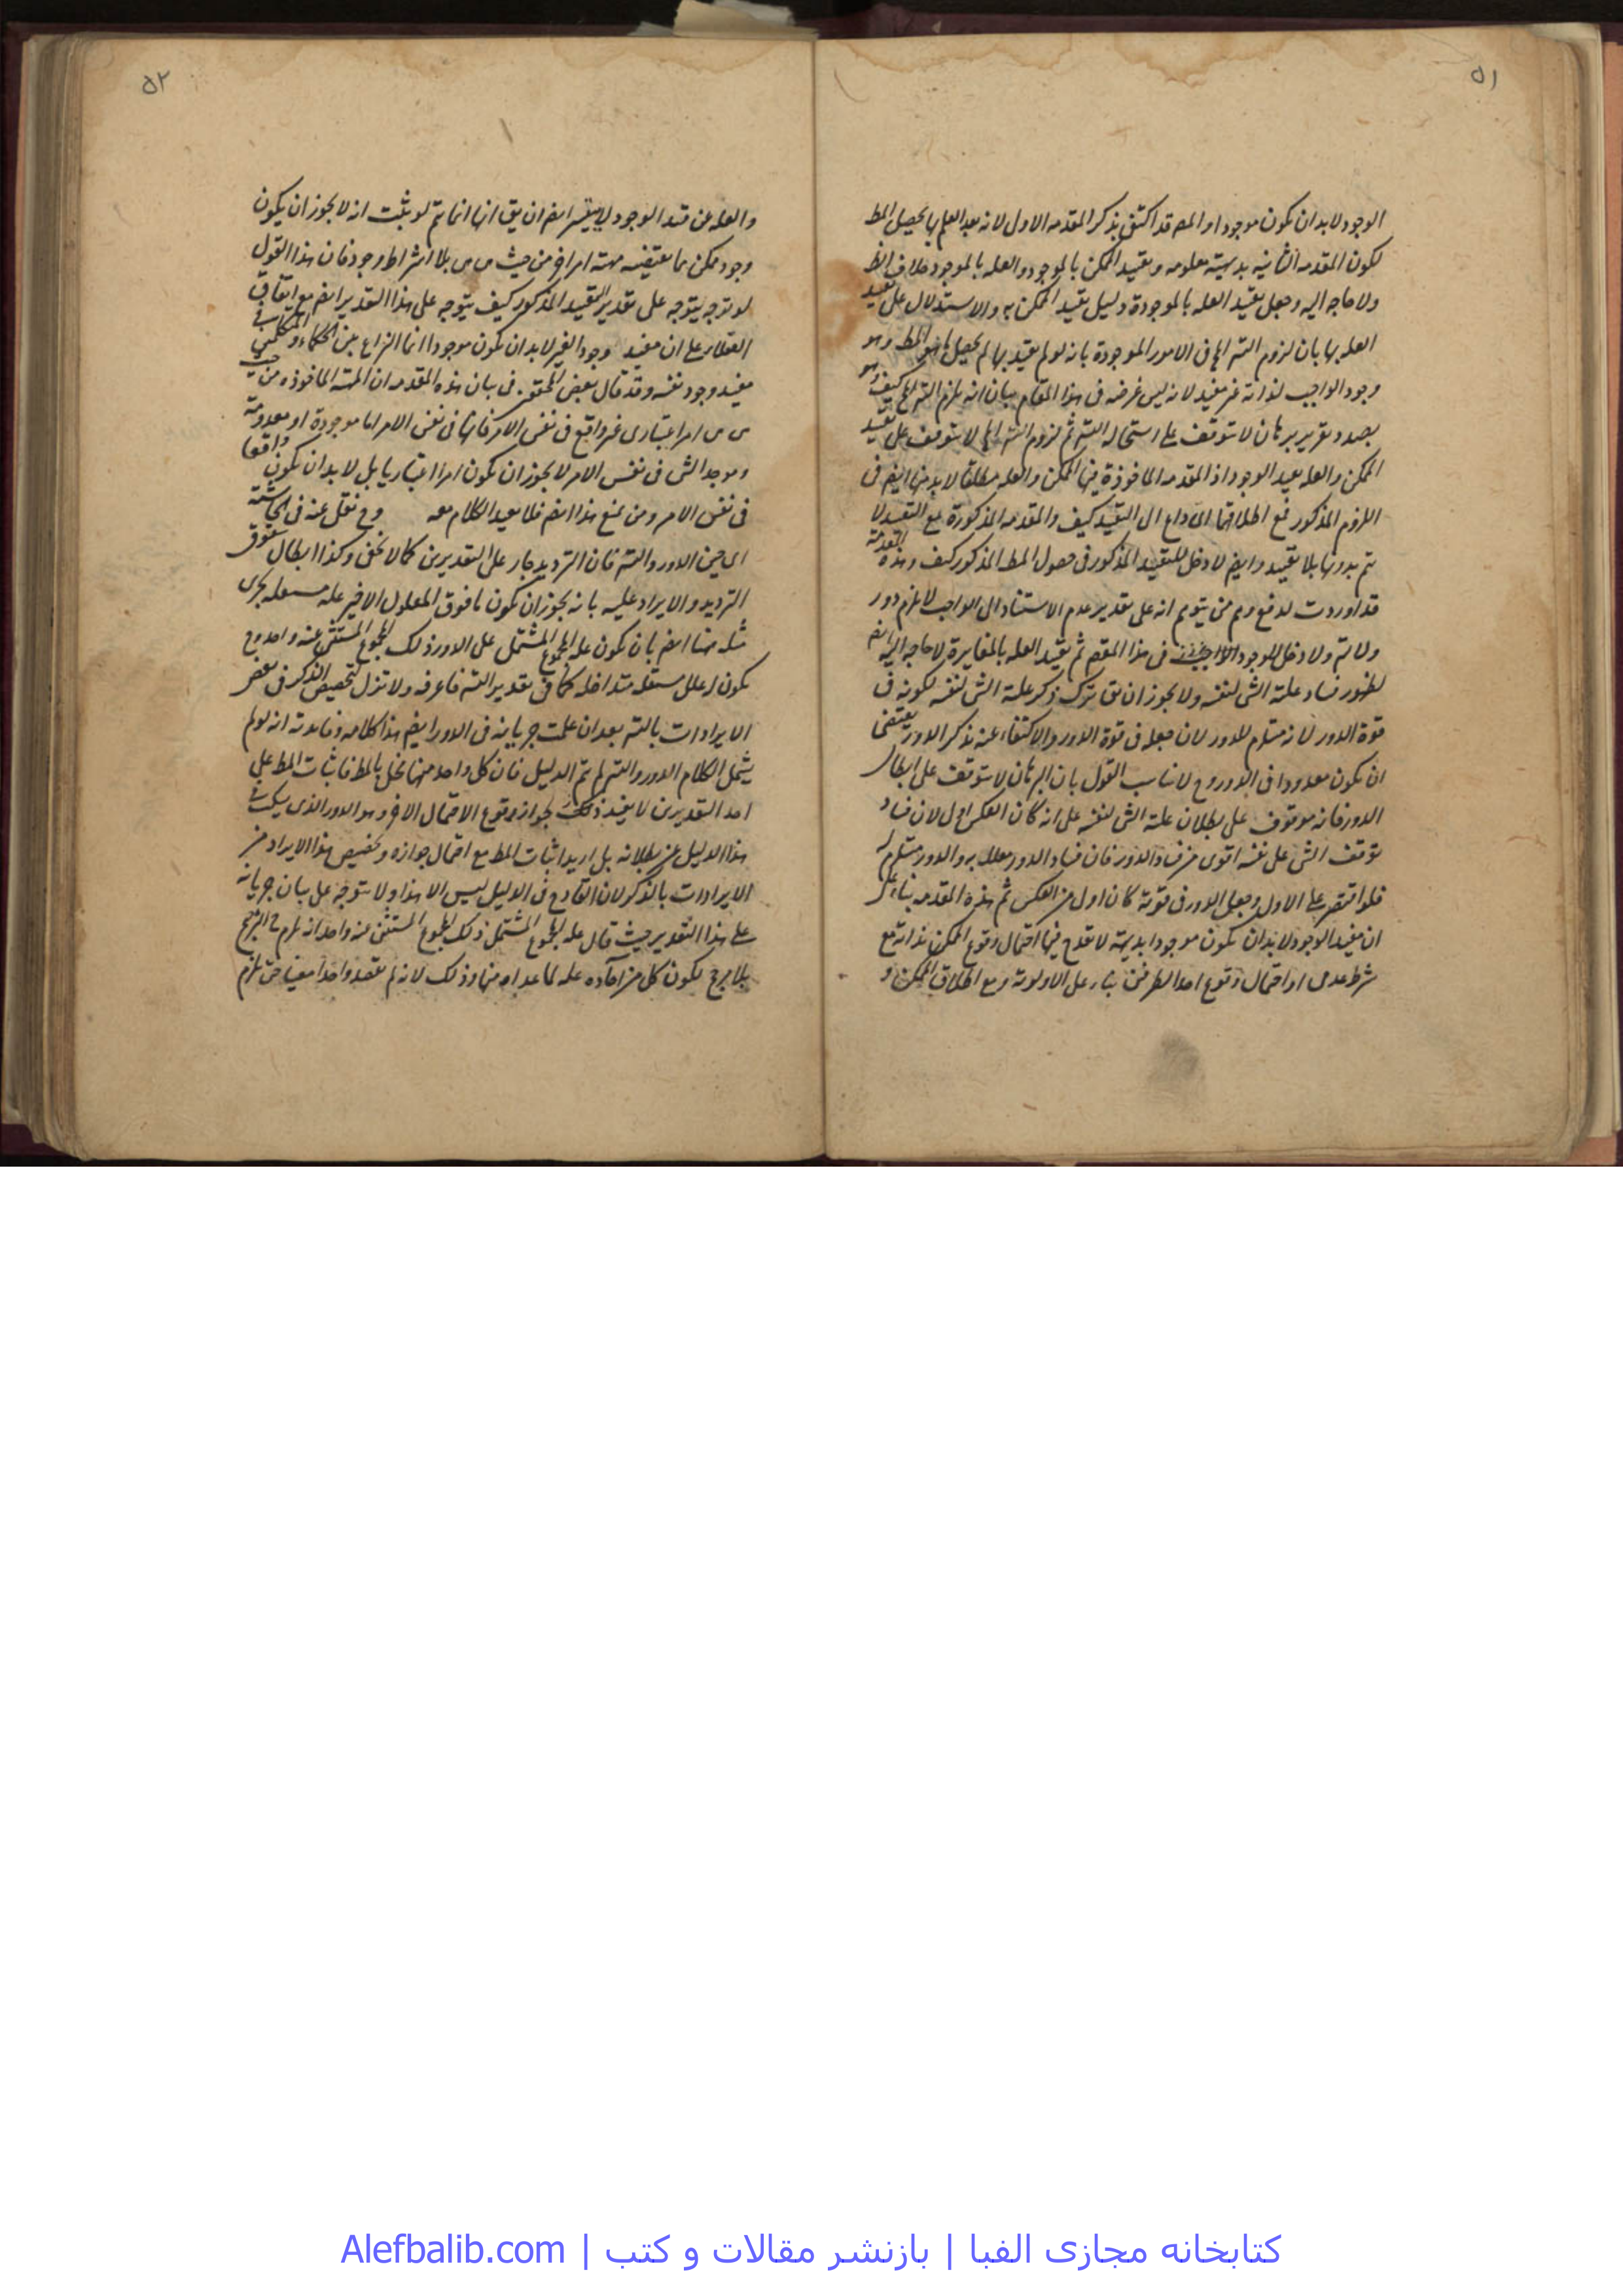 ٥١
الوجود لابد ان يكون موجودا والمص قد اكتفى بذكر المقدمه الاول لانه بعد العلم بها يحصل المط
لكون المقدمه الثانيه بديهية معلومه وتقييد الممكن بالموجود والعله بالموجود خلاف الظ
ولا حاجه اليه وجعل تقييد العله بالموجودة دليل تقييد الممكن به والاستدلال على تقييد
العله بها بان لزوم التس انما فى الامور الموجودة بانه لو لم يقيد بها لم يحصل ما هو المط وهو
وجود الواجب لذاته غير مفيد لانه ليس غرضه فى هذا المقام بيان انه يلزم التس كيف وهو
بصدد تقرير برهان لا يتوقف على استحاله التس ثم لزوم التس لا يتوقف على تقييد
الممكن والعله بقيد الوجود اذ المقدمه الماخوذة فيها الممكن والعله مطلقا لابد منها ايض فى
اللزوم المذكور فمع اطلاقها اى داع الى التقييد كيف والمقدمه المذكورة مع التقييد لا
يتم بدونها بلا تقييد وايض لا دخل للتقييد المذكور فى حصول المط المذكور كيف وهذه المقدمة
قد اوردت لدفع وهم من يتوهم انه على تقدير عدم الاستناد الى الواجب لا يلزم دور
ولا تس ولا دخل للوجود فى هذا المقصد ثم تقييد العله بالمغايرة لا حاجه اليه ايض
لظهور فساد علية الشى لنفسه ولا يجوز ان يق ترك ذكر علية الشى لنفسه لكونه فى
قوة الدور لانه مستلزم للدور لان جعله فى قوة الدور والاكتفاء عنه بذكر الدور يقتضى
ان يكون معدودا فى الدور وح لا يناسب القول بان البرهان لا يتوقف على ابطال
الدور فانه موقوف على بطلان علية الشى لنفسه على انه كان العكس اولى لان فساد
توقف الشى على نفسه اقوى من فساد الدور فان فساد الدور معلل به والدور مستلزم له
فلو اقتصر على الاول وجعل الدور فى قوته كان اولى من العكس ثم هذه المقدمه بناء على
ان مفيد الوجود لابد ان يكون موجودا بديهية لا يقدح فيها احتمال وقوع الممكن بذاته مع
شرط عدمى او احتمال وقوع احد الطرفين بناء على الاولوية ومع اطلاق الممكن و
٥٢
والعله عن قيد الوجود لا يتيسر ايض ان يق انها انما تتم لو ثبت انه لا يجوز ان يكون
وجود ممكن مما يقتضيه مهية امر اخر من حيث هى هى بلا اشتراط وجود فان هذا القول
لو توجه يتوجه على تقدير التقييد المذكور كيف يتوجه على هذا التقدير ايض مع اتفاق
العقلاء على ان مفيد وجود الغير لابد ان يكون موجودا انما النزاع بين الحكماء والمتكلمين فى
مفيد وجود نفسه وقد قال بعض المحققين فى بيان هذه المقدمه ان المهية الماخوذه من حيث
هى هى امر اعتبارى غير واقع فى نفس الامر فانها فى نفس الامر اما موجودة او معدومة
وموجد الشى فى نفس الامر لا يجوز ان يكون امرا اعتباريا بل لابد ان يكون واقعا
فى نفس الامر ومن منع هذا ايض فلا يفيد الكلام معه وح نقل عنه فى الحاشية
اى حين الدور والتس فان الترديد جار على التقديرين كما لا يخفى وكذا ابطال شقوق
الترديد والايراد عليه بانه يجوز ان يكون ما فوق المعلول الاخير علة مستقله يجرى
مثله هنا ايض بان يكون علة المجموع المشتمل على الدور ذلك المجموع المستثنى عنه واحد وح
يكون له علل مستقله متداخله كما فى تقدير التس فاعرفه ولا تزل لتخصيص الذكر فى بعض
الايرادات بالتس بعد ان علمت جريانه فى الدور ايض هذا كلامه وفائدته انه لو لم
يشمل الكلام الدور والتس لم يتم الدليل فان كل واحد منهما مخل بالمط فاثبات المط على
احد التقديرين لا يفيد ذلك لجواز وقوع الاحتمال الاخر وهو الدور الذى سكت فى
هذا الدليل عن بطلانه بل اريد اثبات المط مع احتمال جوازه وتخصيص هذا الايراد من
الايرادات بالذكر لان القادح فى الدليل ليس الا هذا ولا يتوجه على بيان جريانه
على هذا التقدير حيث قال علة المجموع المشتمل ذلك المجموع المستثنى منه واحد انه يلزم ح الترجيح
بلا مرجح لكون كل من احاده علة لما عداه منها وذلك لانه لم يقصد واحدا معينا حتى يلزم
كتابخانه مجازی الفبا | بازنشر مقالات و کتب | Alefbalib.com